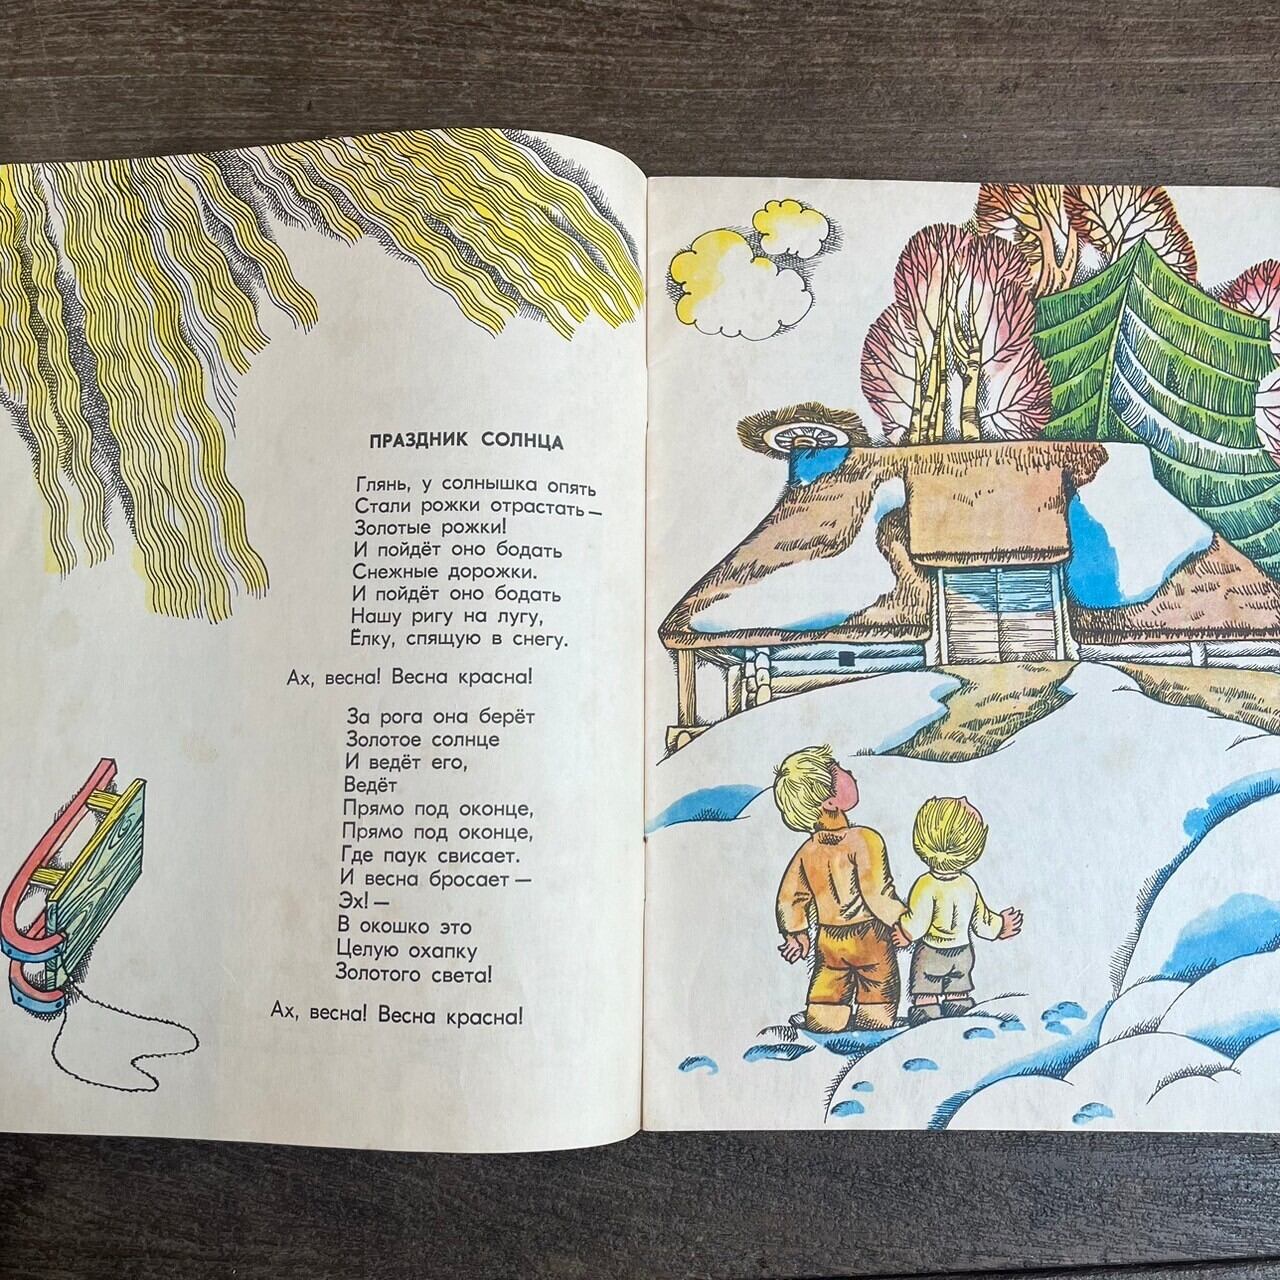 ПРАЗДНИК СОЛНЦА
Глянь, у солнышка опять
Стали рожки отрастать —
Золотые рожки!
И пойдёт оно бодать
Снежные дорожки.
И пойдёт оно бодать
Нашу ригу на лугу,
Ёлку, спящую в снегу.
Ах, весна! Весна красна!
За рога она берёт
Золотое солнце
И ведёт его,
Ведёт
Прямо под оконце,
Прямо под оконце,
Где паук свисает.
И весна бросает —
Эх! —
В окошко это
Целую охапку
Золотого света!
Ах, весна! Весна красна!